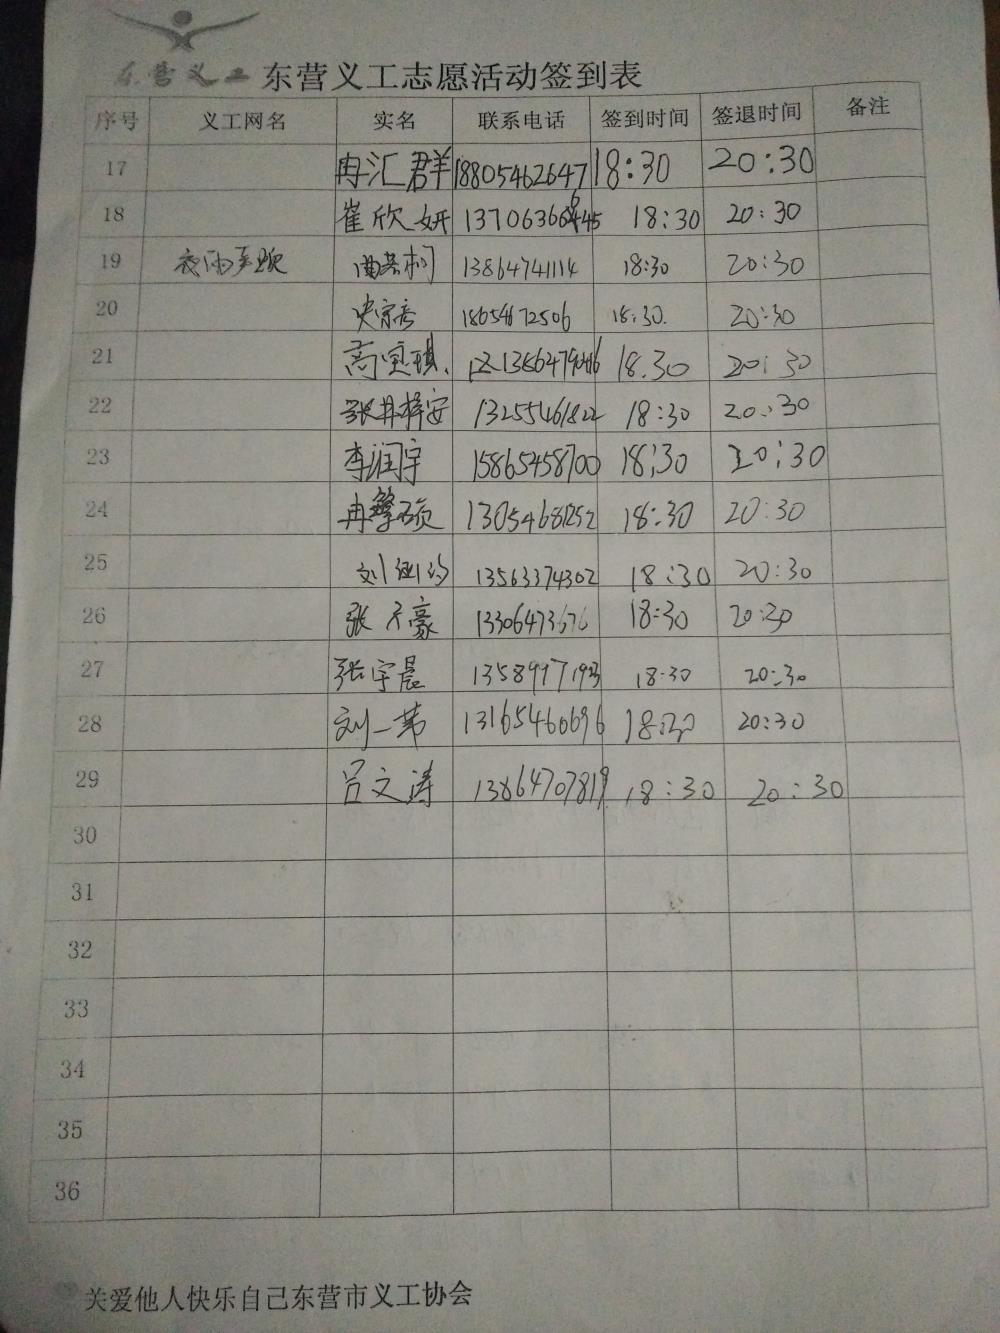 东营义工 东营义工志愿活动签到表
序号 义工网名 实名 联系电话 签到时间 签退时间 备注
17 冉汇群 18805462647 18:30 20:30
18 崔欣妍 18:30 20:30
19 13864741114 18:30 20:30
20 18654672506 18:30. 20:30
21 高宝琪 18.30 20:30
22 13255461822 18:30 20:30
23 李润宇 15865458700 18:30 20:30
24 冉 硕 13054681252 18:30 20:30
25 刘 13563374302 18:30 20:30
26 张 豪 13306473676 18:30 20:30
27 张宇晨 18:30 20:30
28 刘一苇 13165460696 18:30 20:30
29 吕文涛 13864707819 18:30 20:30
30
31
32
33
34
35
36
关爱他人快乐自己东营市义工协会